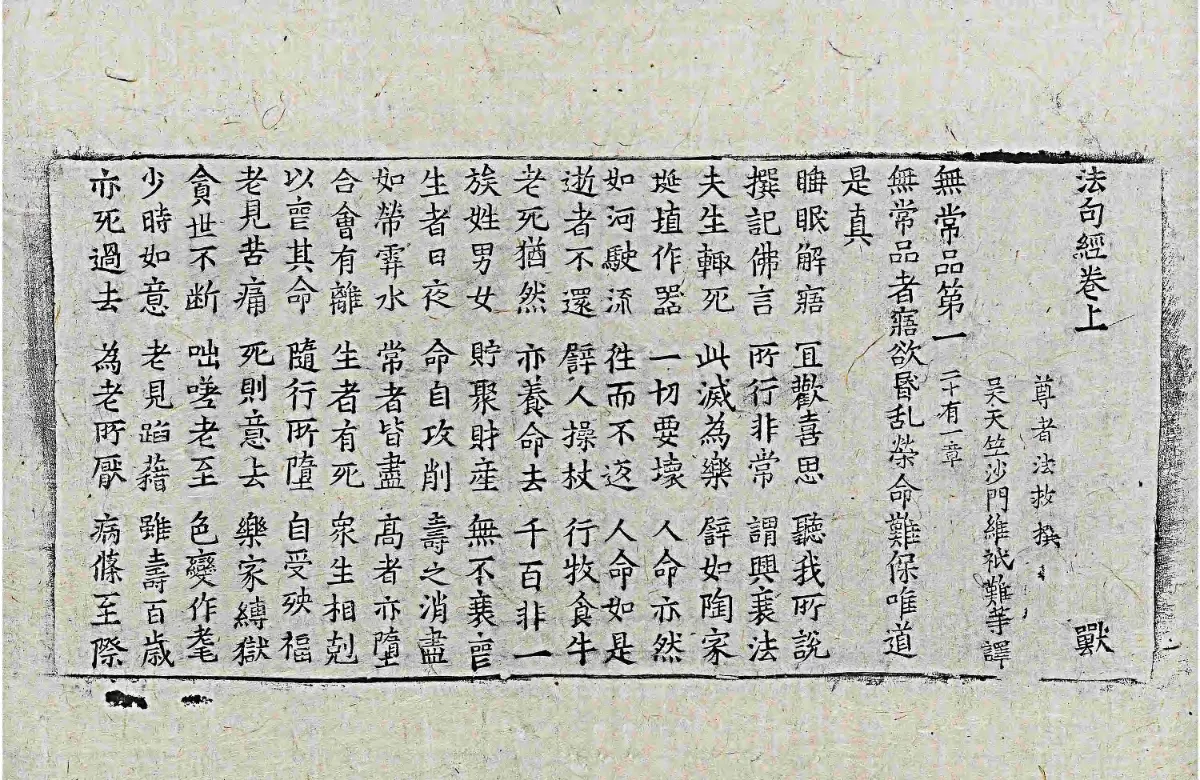 法句經卷上 獸
尊者法救撰
吳天竺沙門維祇難等譯
無常品第一 二十有一章
無常品者寤欲昬乱榮命難保唯道
是真
睡眠解寤 冝歡喜思 聽我所說
撰記佛言 所行非常 謂興衰法
夫生輙死 此滅為樂 譬如陶家
埏埴作器 一切要壞 人命亦然
如河駛流 徃而不返 人命如是
逝者不還 譬人操杖 行牧食牛
老死猶然 亦養命去 千百非一
族姓男女 貯聚財産 無不衰喪
生者日夜 命自攻削 壽之消盡
如㷀霏水 常者皆盡 高者亦墮
合會有離 生者有死 衆生相剋
以喪其命 隨行所墮 自受殃福
老見苦痛 死則意去 樂家縛獄
貪世不断 咄嗟老至 色變作耄
少時如意 老見蹈藉 雖壽百歳
亦死過去 為老所厭 病條至際